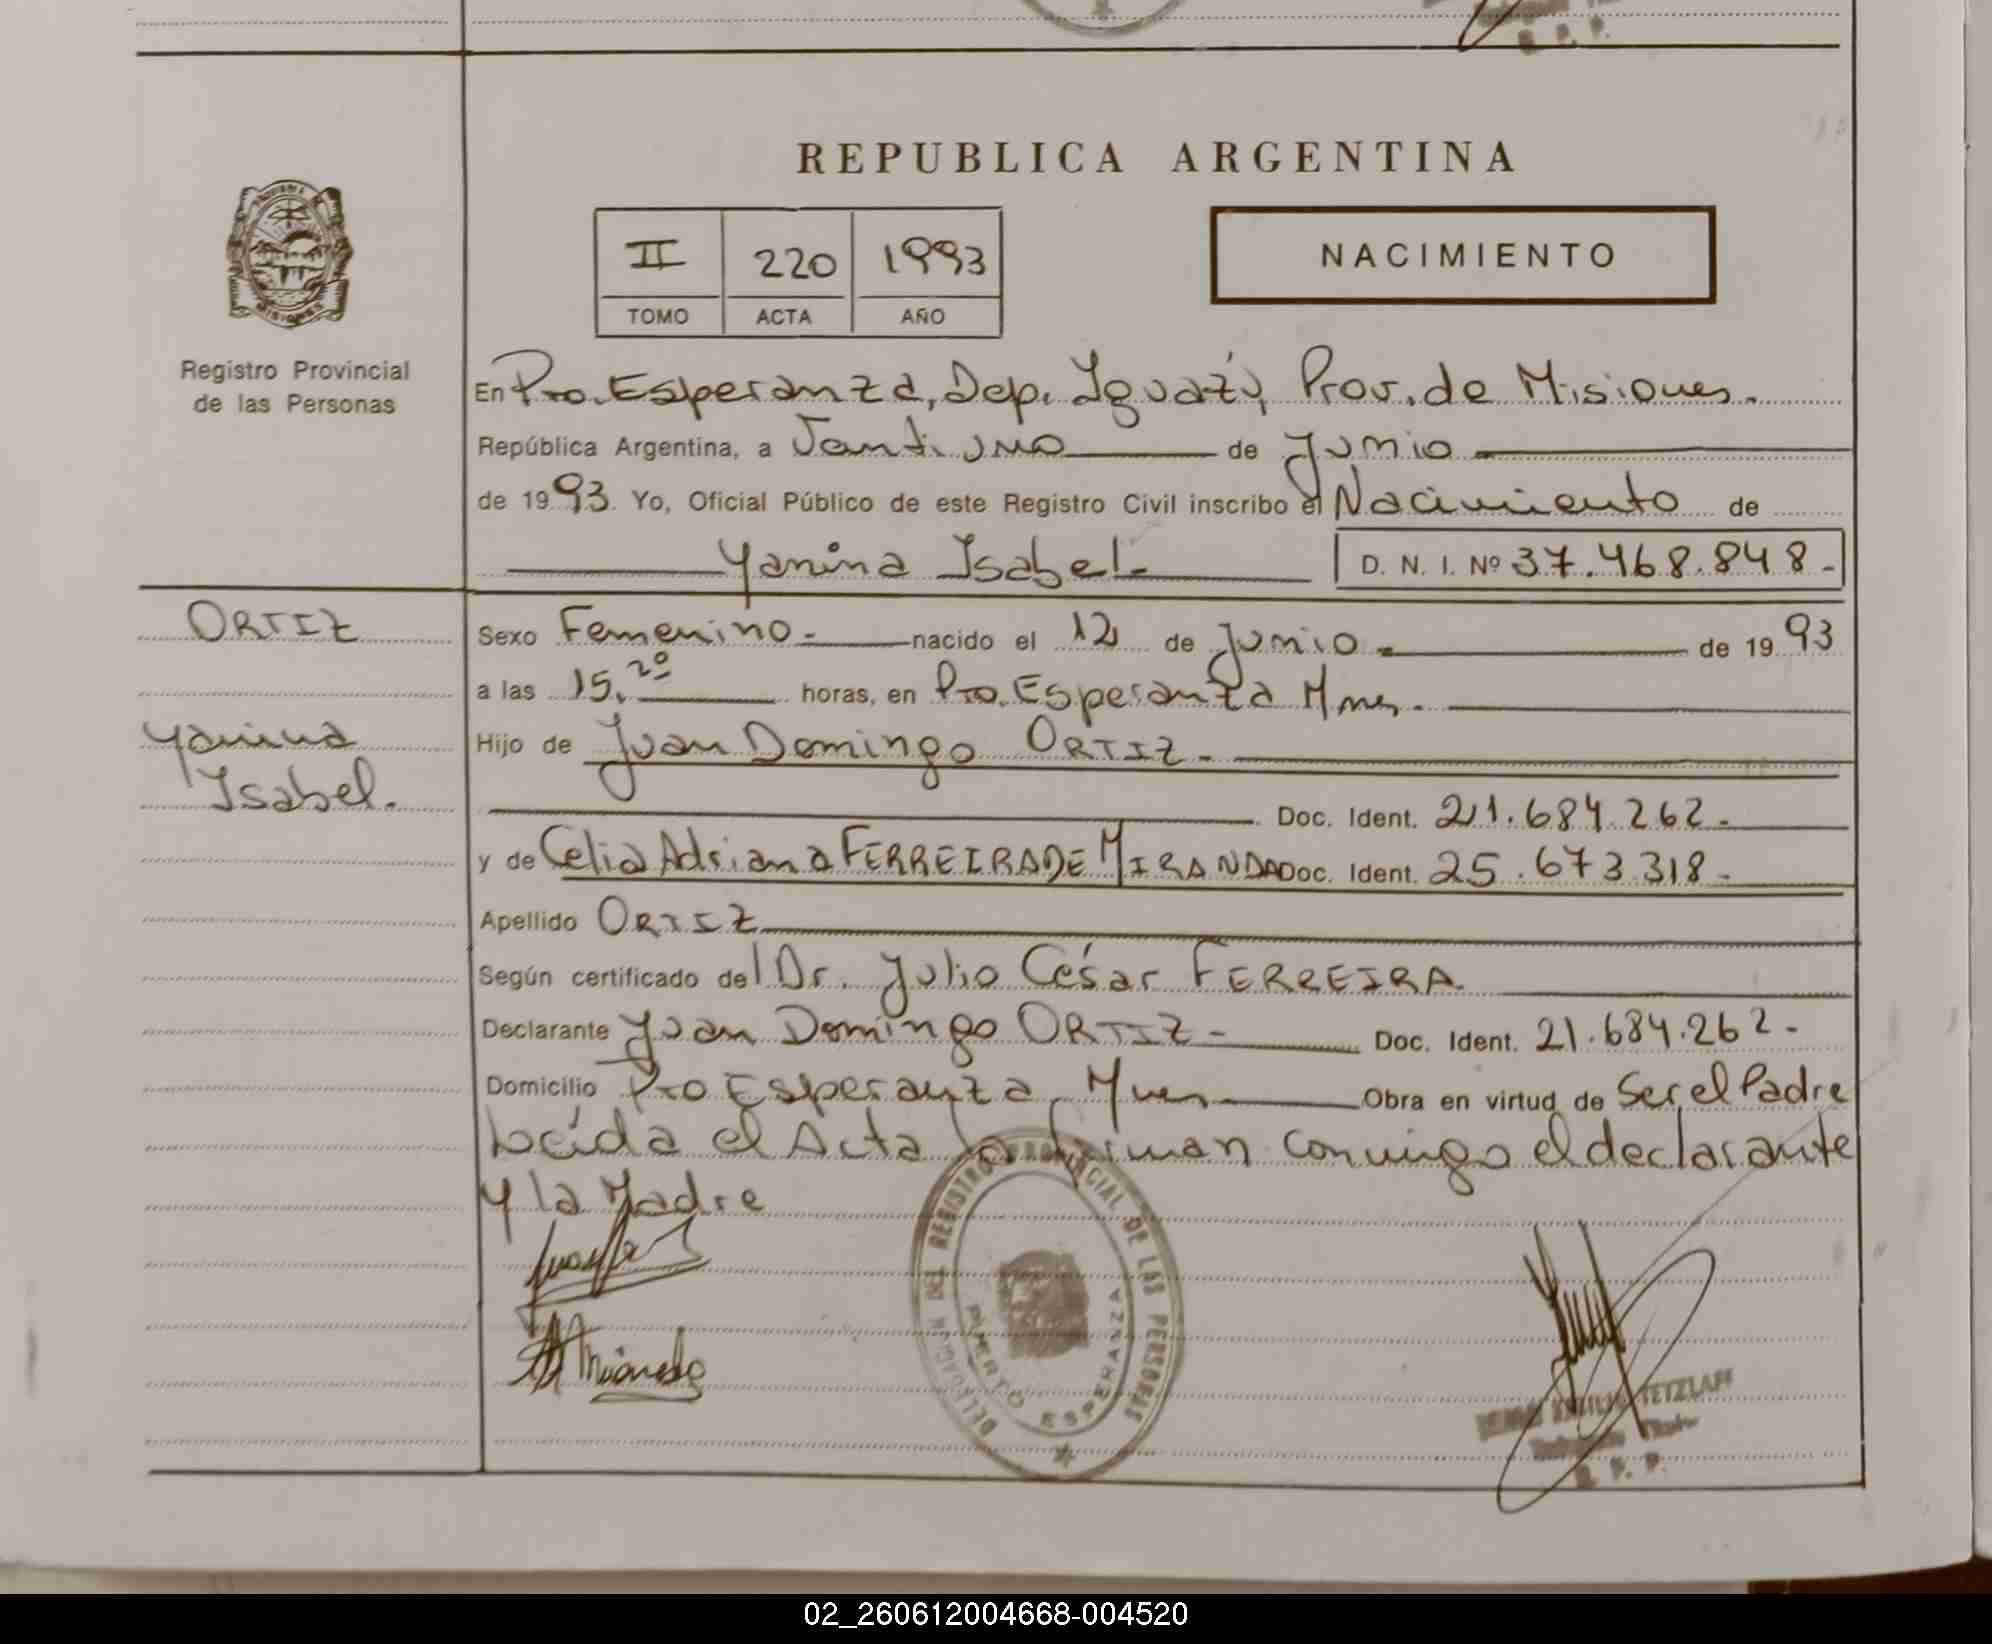 REPUBLICA ARGENTINA
II 220 1993
TOMO ACTA AÑO
NACIMIENTO
Registro Provincial
de las Personas
En Pto. Esperanza, Dep. Iguazú, Prov. de Misiones.
República Argentina, a Vantiuno de Junio
de 1993. Yo, Oficial Público de este Registro Civil inscribo el Nacimiento de
Yanina Isabel.-
D. N. I. Nº 37.468.848.-
ORTIZ
Yanina
Isabel.
Sexo Femenino.- nacido el 12 de Junio.- de 1993
a las 15.20 horas, en Pto. Esperanza Mnes.-
Hijo de Juan Domingo ORTIZ.-
Doc. Ident. 21.684.262.-
y de Celia Adriana FERREIRA DE MIRANDA Doc. Ident. 25.673.318.-
Apellido ORTIZ
Según certificado del Dr. Julio César FERREIRA
Declarante Juan Domingo ORTIZ.- Doc. Ident. 21.684.262.-
Domicilio Pto Esperanza, Mnes Obra en virtud de Ser el Padre
Leída el Acta la firman conmigo el declarante
y la Madre
A Miranda
DELEGACION DEL REGISTRO PROVINCIAL DE LAS PERSONAS
PUERTO ESPERANZA
TETZLAFF
Titular
R. P. P.
02_260612004668-004520